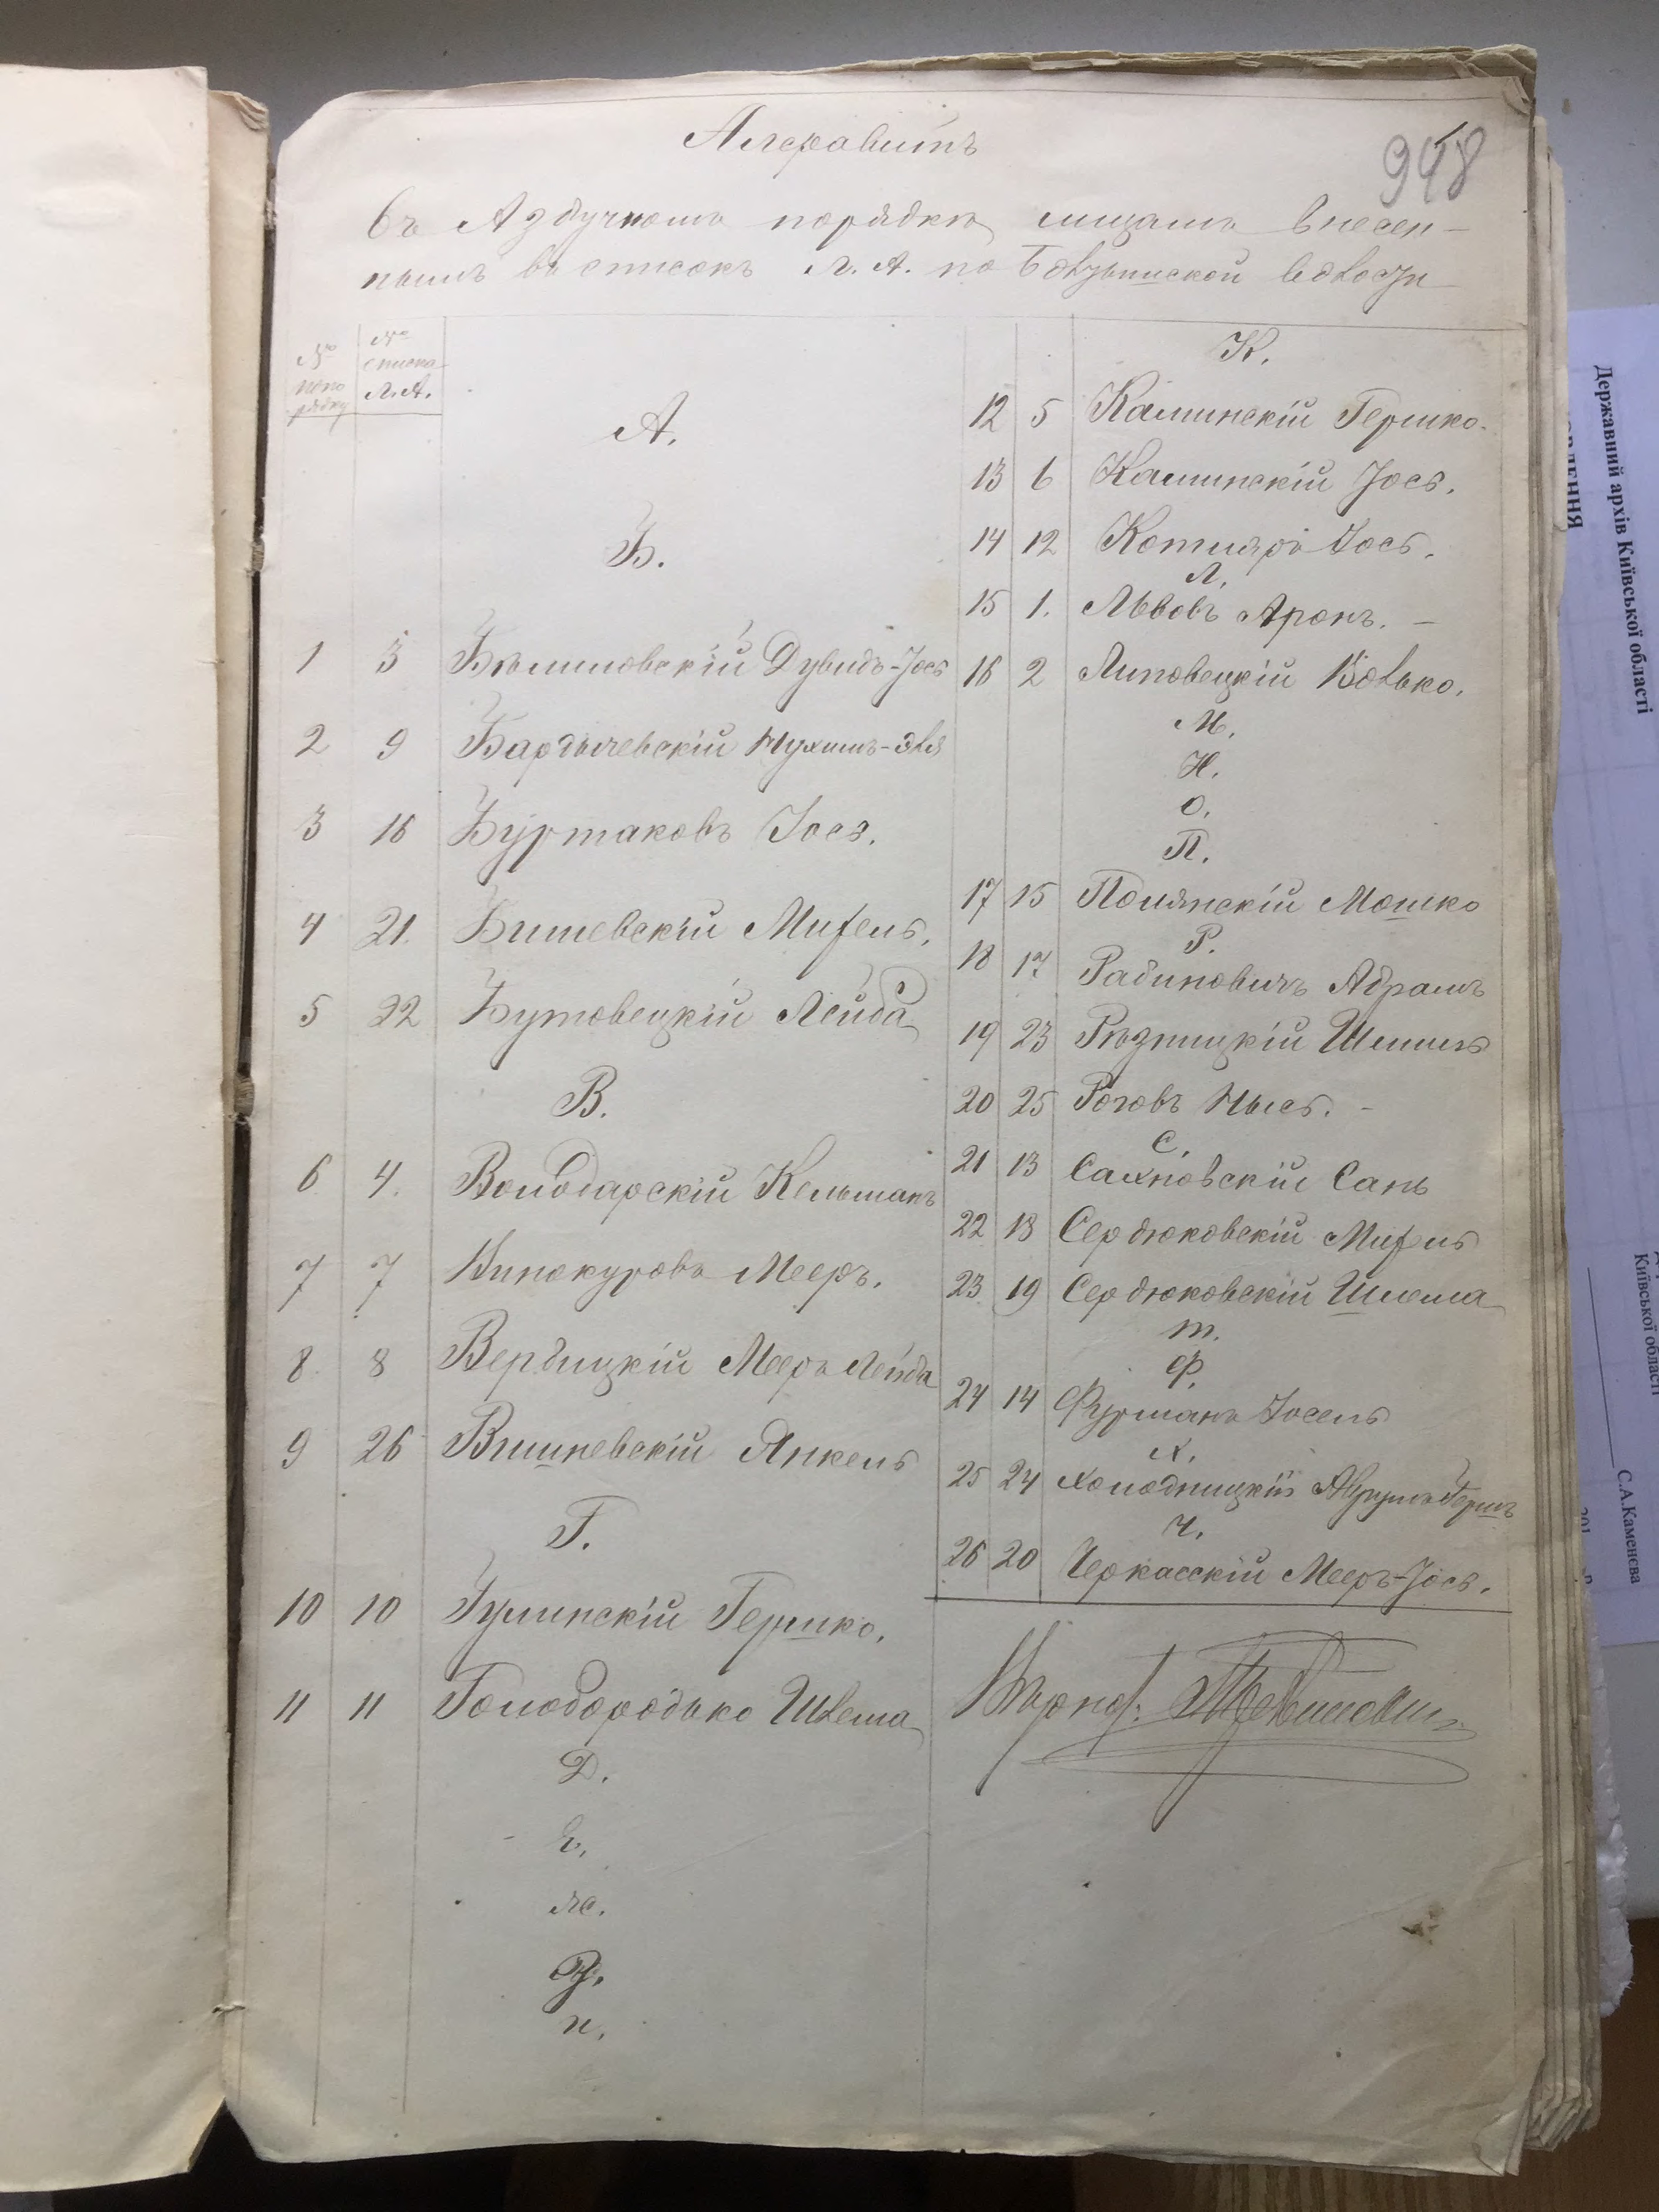 Алфавитъ
948
въ Азбучномъ порядкѣ лицамъ внесен-
нымъ въ списокъ Л. А. по волости
№ по порядку
№ списка Л.А.
А.
Б.
1 3 Бѣлиловскій Дувидъ-Іось
2 9 Бардычевскій Нухимъ-
3 16 Буртаковъ Іось.
4 21. Бишевскій Михель.
5 22 Бутовецкій Лейба
В.
6 4. Володарскій Кельманъ
7 7. Винокуровъ Мееръ.
8. 8 Вербицкій Мееръ Лейба
9 26 Вишневскій Янкель
Г.
10 10 Гулинскій Гершко.
11 11 Голобородько Шлема
Д.
Е.
Ж.
З.
И.
К.
12 5 Калинскій Гершко.
13 6 Калинскій Іось.
14 12 Котляръ Іось.
Л.
15 1. Львовъ Аронъ. —
16 2 Липовецкій Волько.
М.
Н.
О.
П.
17 15 Полянскій Мошко
Р.
18 17 Рабиновичъ Абрамъ
19 23 Рѣзницкій Шмиль
20 25 Роговъ Нысь. -
С.
21 13 Сахновскій Сань
22 18 Сердюковскій Михель
23 19 Сердюковскій Шлема
Т.
Ф.
24 14 Фурманъ Іосель
Х.
25 24 Холодницкій Аврумъ Гершъ
Ч.
26 20 Черкасскій Мееръ-Іось.
Державний архів Київської області
Київської області
С.А.Каменєва